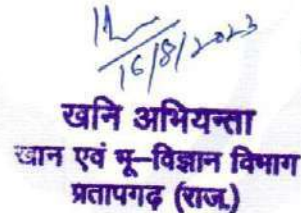 16/8/2023
खनि अभियन्ता
खान एवं भू-विज्ञान विभाग
प्रतापगढ़ (राज.)